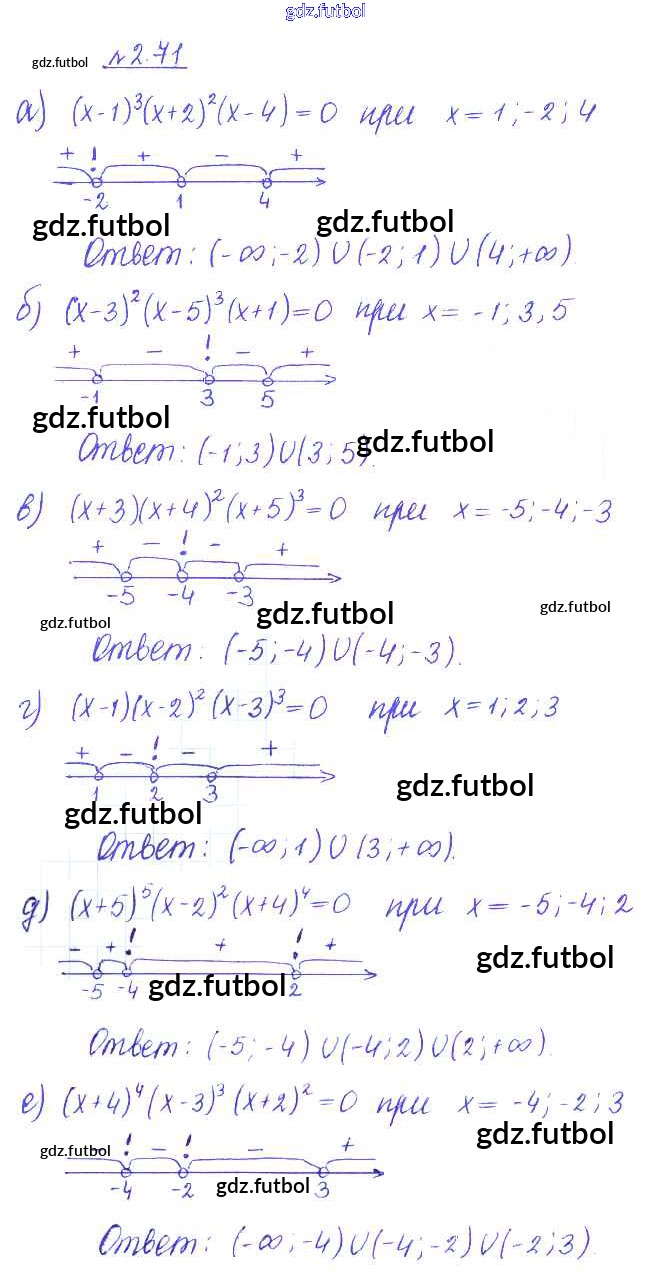 gdz.futbol
gdz.futbol №2.71
а) (x-1)³(x+2)²(x-4)=0 при x=1;-2;4
+ ! + - +
-2 1 4
gdz.futbol gdz.futbol
Ответ: (-∞;-2)∪(-2;1)∪(4;+∞)
б) (x-3)²(x-5)³(x+1)=0 при x= -1;3,5
+ - ! - +
-1 3 5
gdz.futbol
Ответ: (-1;3)∪(3;5). gdz.futbol
в) (x+3)(x+4)²(x+5)³=0 при x=-5;-4;-3
+ - ! - +
-5 -4 -3
gdz.futbol gdz.futbol gdz.futbol
Ответ: (-5;-4)∪(-4;-3).
г) (x-1)(x-2)²(x-3)³=0 при x=1;2;3
+ - ! - +
1 2 3
gdz.futbol gdz.futbol
Ответ: (-∞;1)∪(3;+∞).
д) (x+5)⁵(x-2)²(x+4)⁴=0 при x=-5;-4;2
- + ! + ! +
-5 -4 2
gdz.futbol gdz.futbol
Ответ: (-5;-4)∪(-4;2)∪(2;+∞).
е) (x+4)⁴(x-3)³(x+2)²=0 при x= -4;-2;3
gdz.futbol
gdz.futbol - ! - ! - +
-4 -2 3
gdz.futbol
Ответ: (-∞;-4)∪(-4;-2)∪(-2;3).